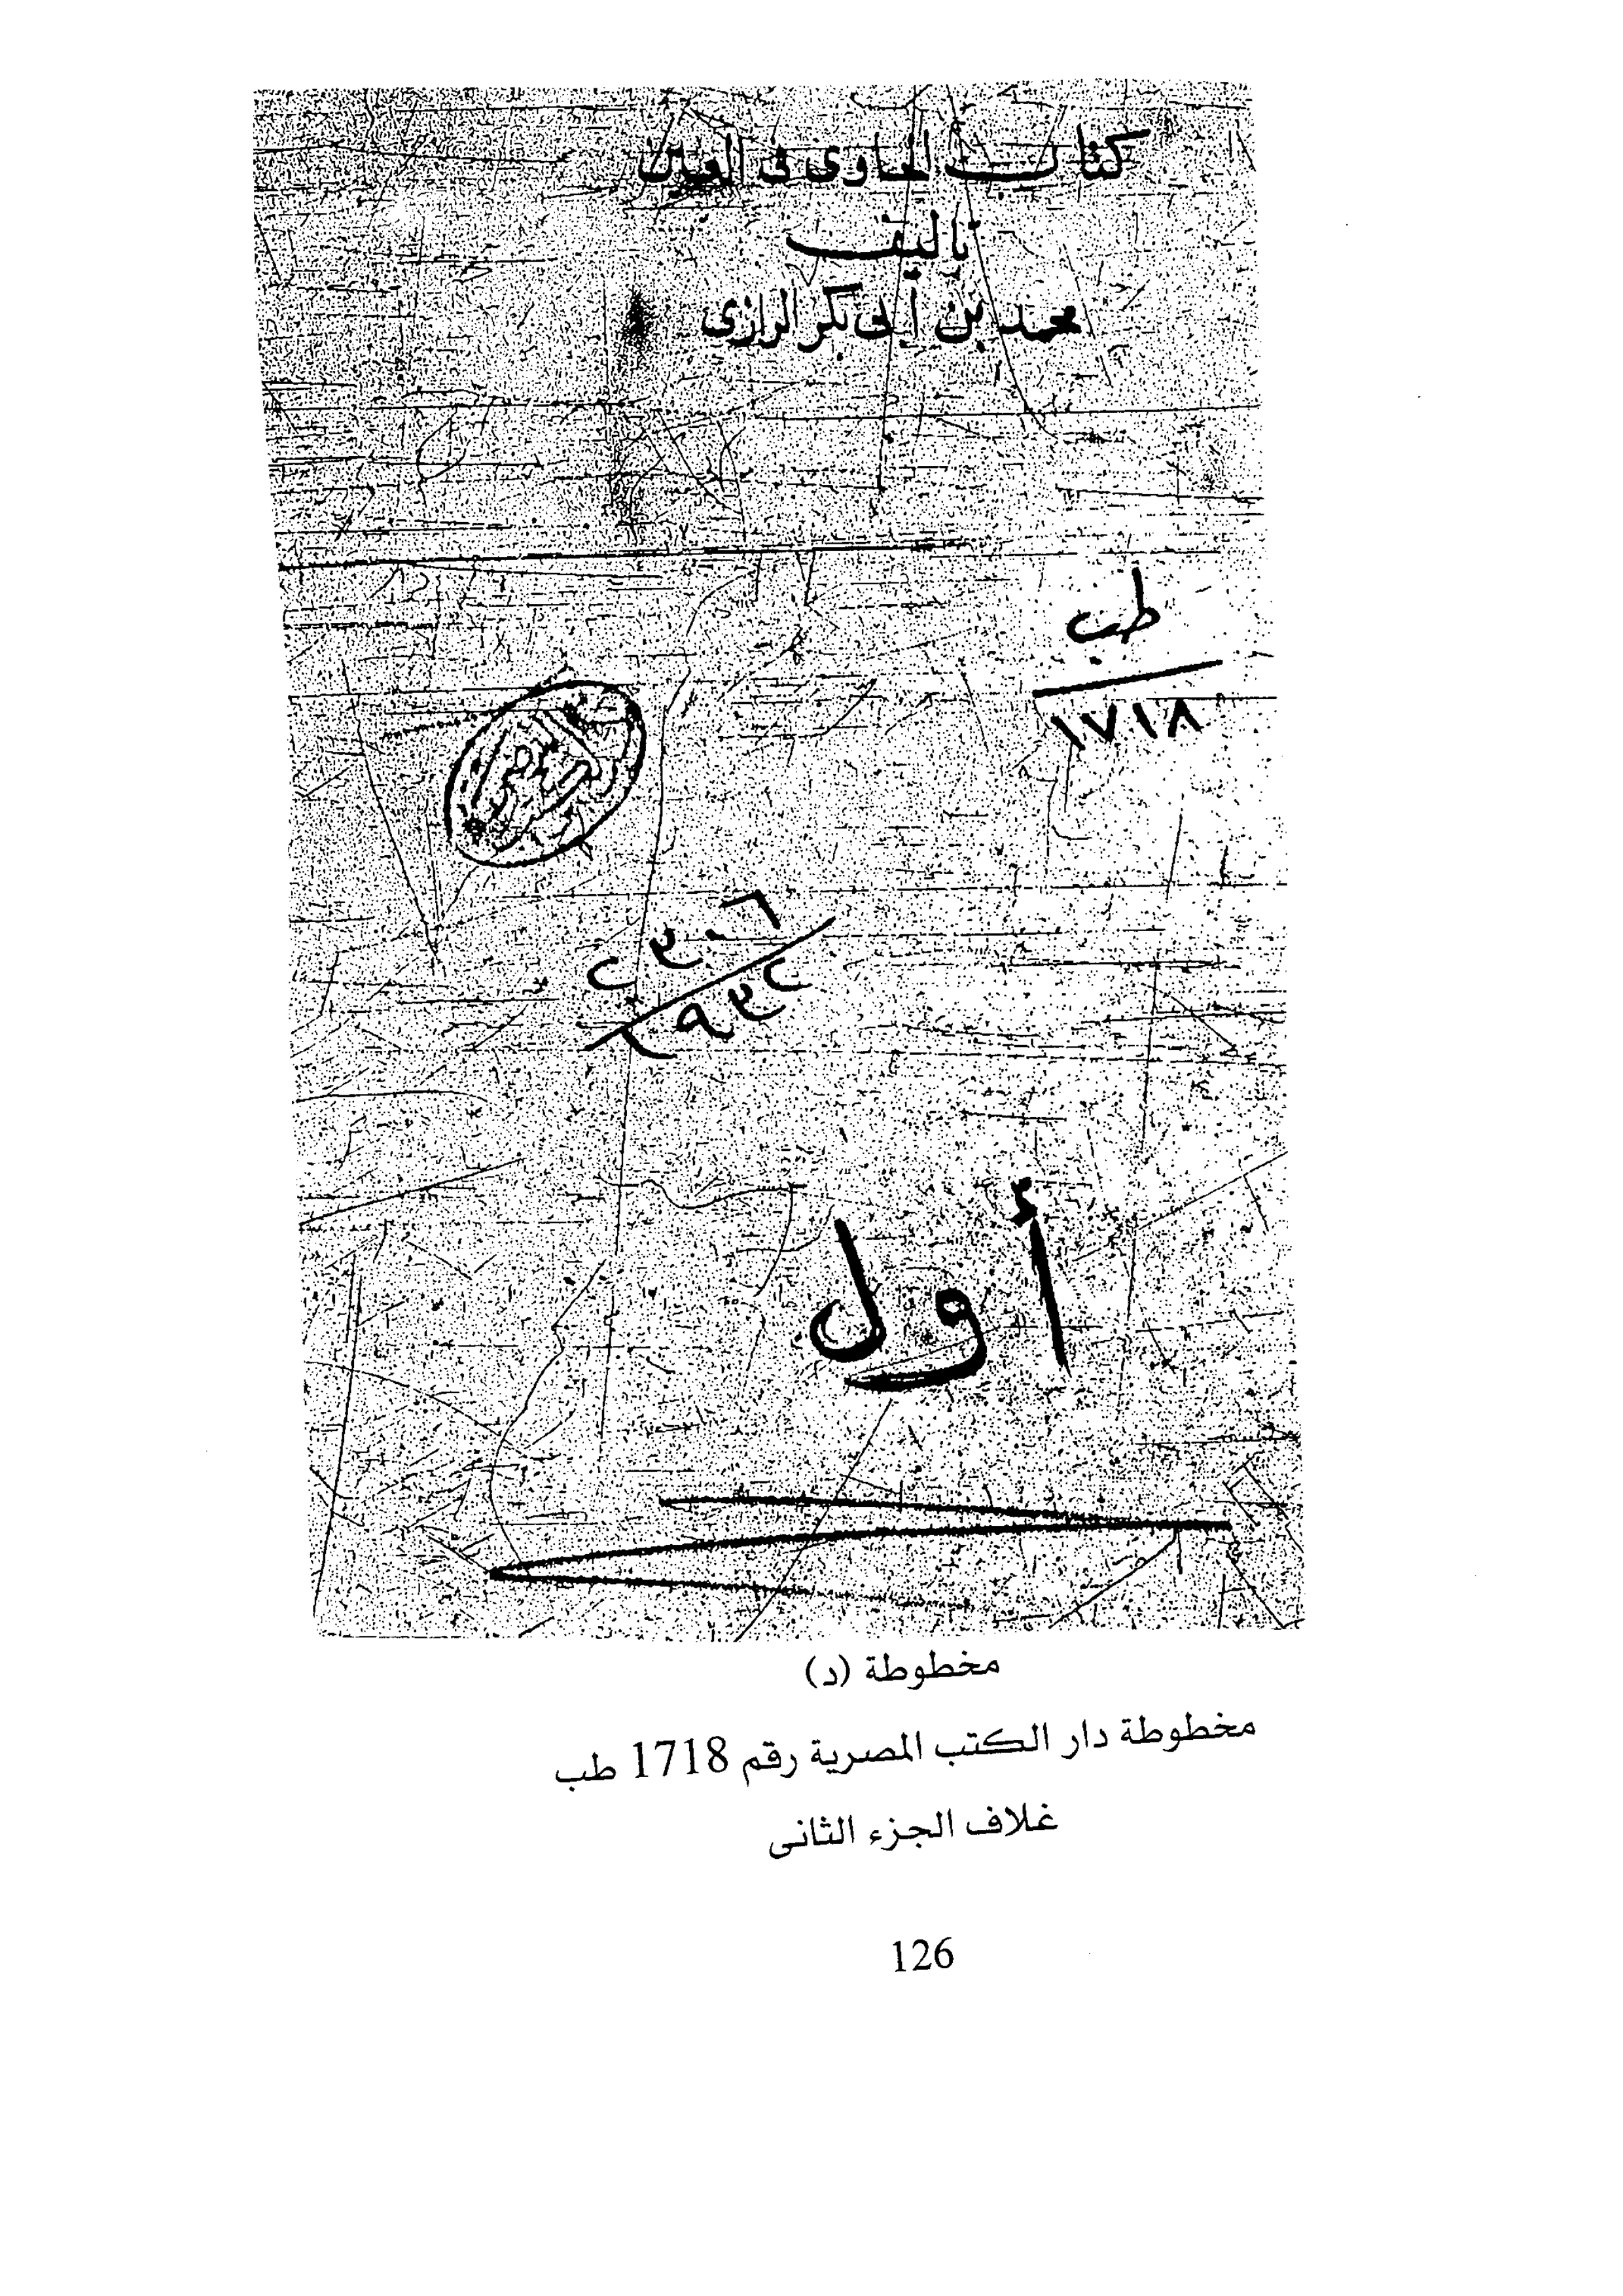 كتاب الحاوى فى العين
تاليف
محمد بن أبى بكر الرازى
طب
١٧١٨
أول
مخطوطة (د)
مخطوطة دار الكتب المصرية رقم 1718 طب
غلاف الجزء الثانى
126